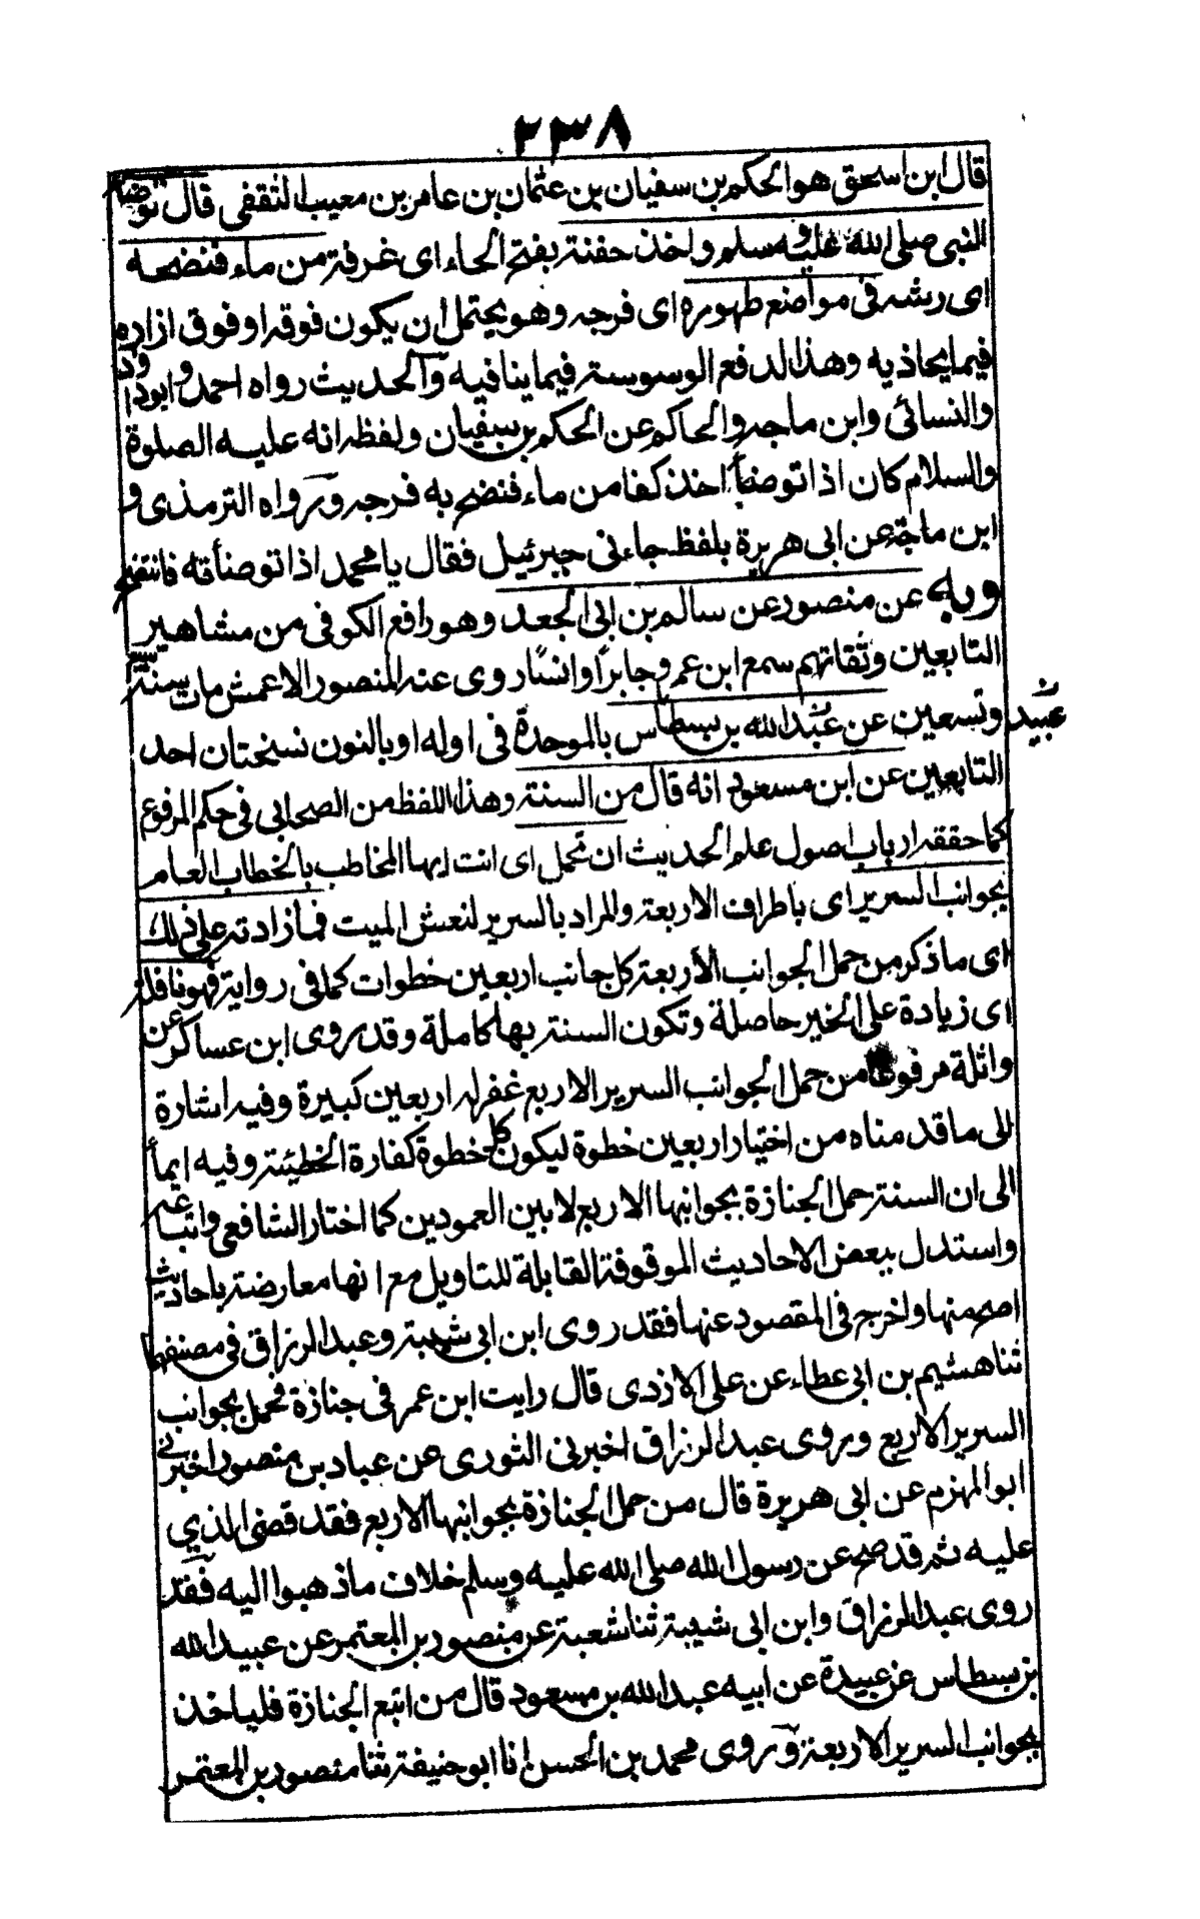 ٢٣٨
قال ابن اسحق هو الحكم بن سفيان بن عثمان بن عامر بن معيب الثقفى قال توضأ
النبى صلى الله عليه وسلم واخذ حفنة بفتح الحاء اى غرفة من ماء فنضحه
اى رشه فى مواضع طهوره اى فرجه وهو يحتمل ان يكون فوقه او فوق ازاره
فيما يحاذيه وهذا لدفع الوسوسة فيما ينافيه والحديث رواه احمد وابوداود
والنسائى وابن ماجه والحاكم عن الحكم بن سفيان ولفظه انه عليه الصلوة
والسلام كان اذا توضأ اخذ كفا من ماء فنضح به فرجه ورواه الترمذى و
ابن ماجة عن ابى هريرة بلفظ جاءنى جبرئيل فقال يا محمد اذا توضأته فانتضح
وبه عن منصور عن سالم بن ابى الجعد وهو رافع الكوفى من مشاهير
التابعين وثقاتهم سمع ابن عمر وجابرًا وانسًا روى عنه المنصور الاعمش مات سنة
وتسعين عن عبد الله بن بسطاس بالموحدة فى اوله او بالنون نسختان احد
عبيد
التابعين عن ابن مسعود انه قال من السنة وهذا اللفظ من الصحابى فى حكم المرفوع
كما حققه ارباب اصول علم الحديث ان تحمل اى انت ايها المخاطب بالخطاب العام
بجوانب السرير اى باطراف الاربعة والمراد بالسرير لنعش الميت فما زادته على ذلك
اى ما ذكر من حمل الجوانب الأربعة كل جانب اربعين خطوات كما فى رواية فهو نافلة
اى زيادة على الخير حاصلة وتكون السنة بها كاملة وقد روى ابن عساكر عن
واثلة مرفوعا من حمل الجوانب السرير الاربع غفر له اربعين كبيرة وفيه اشارة
الى ما قدمناه من اختيار اربعين خطوة ليكون كل خطوة كفارة الخطيئة وفيه ايمأ
الى ان السنة حمل الجنازة بجوانبها الاربع لا بين العمودين كما اختار الشافعى واتباعه
واستدل ببعض الاحاديث الموقوفة القابلة للتاويل مع انها معارضة باحاديث
اصح منها واخرج فى المقصود عنها فقد روى ابن ابى شيبة وعبد الرزاق فى مصنفهما
ثنا هشيم بن ابى عطاء عن على الازدى قال رايت ابن عمر فى جنازة فحمل بجوانب
السرير الاربع وروى عبد الرزاق اخبرنى الثورى عن عباد بن منصور اخبرنى
ابو المهزم عن ابى هريرة قال من حمل الجنازة بجوانبها الاربع فقد قضى الذي
عليه ثم قد صح عن رسول الله صلى الله عليه وسلم خلاف ما ذهبوا اليه فقد
روى عبد الرزاق وابن ابى شيبة ثنا شعبة عن منصور بن المعتمر عن عبيد الله
بن بسطاس عن عبيدة عن ابيه عبد الله بن مسعود قال من اتبع الجنازة فليأخذ
بجوانب السرير الاربعة وروى محمد بن الحسن انا ابو حنيفة ثنا منصور بن المعتمر